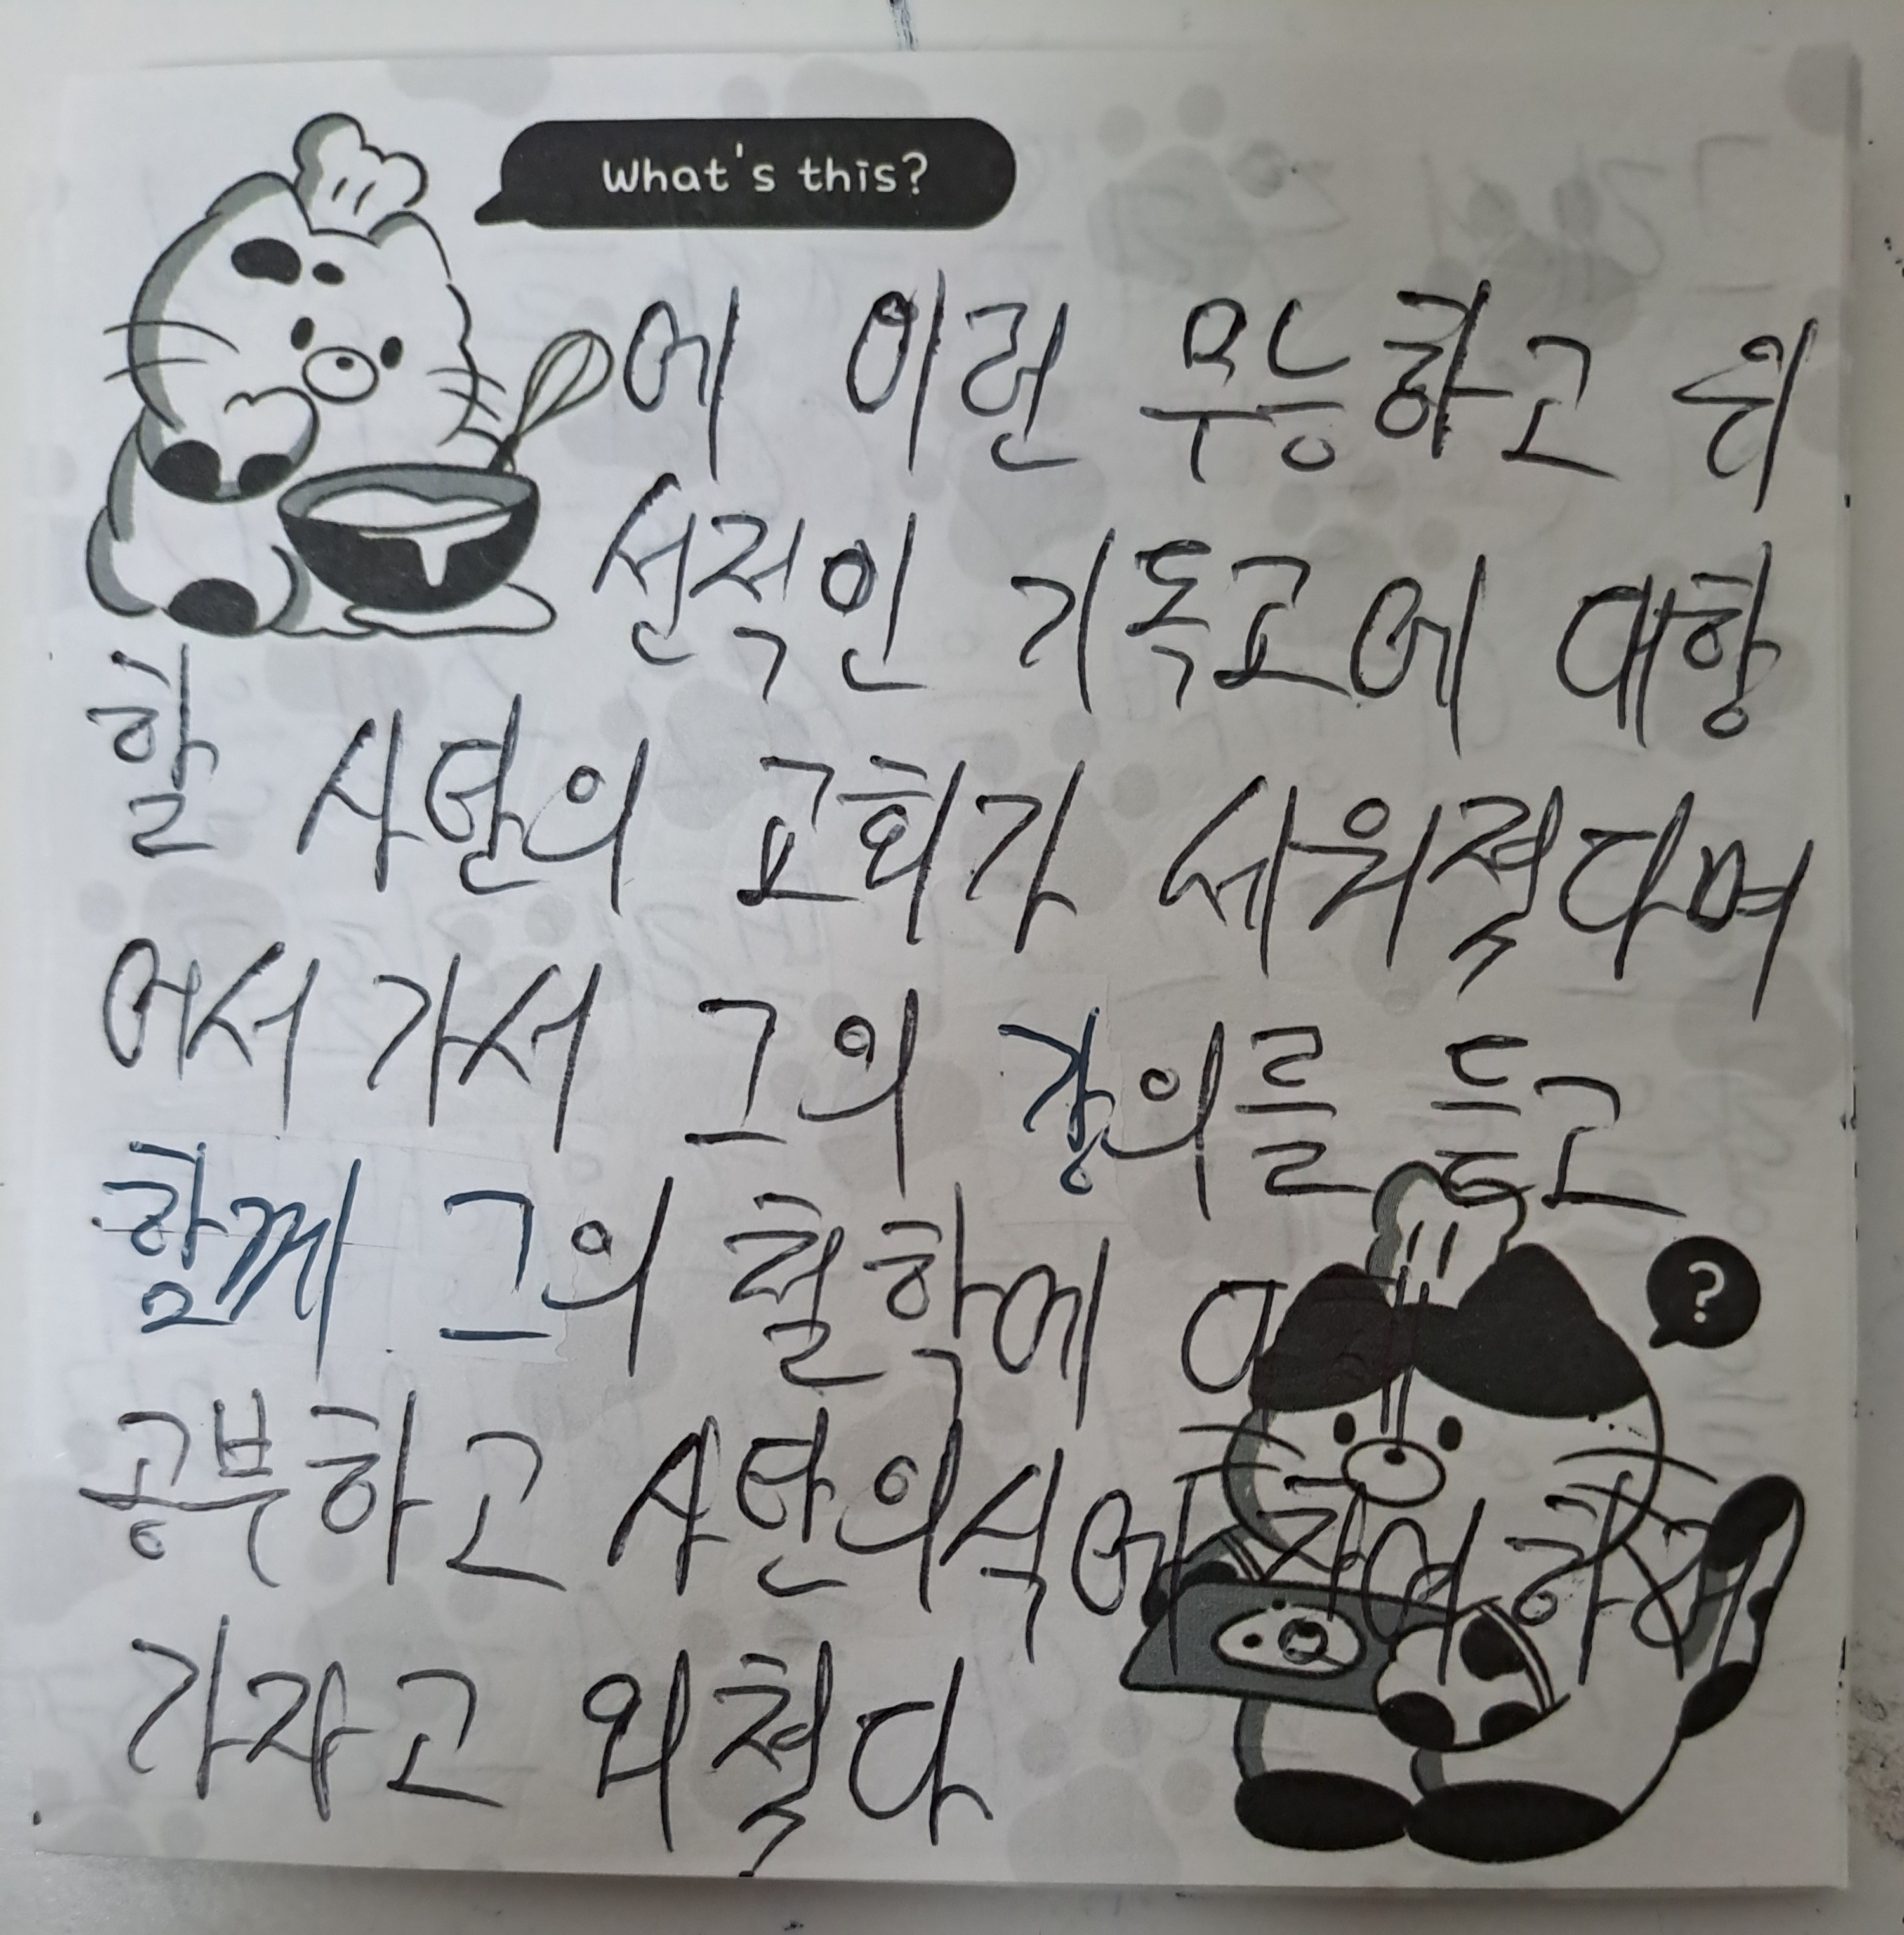 What's this?
에 이런 무능하고 위
선적인 기독교에 대항
할 사탄의 교회가 세워졌다며
어서 가서 그의 강의를 듣고
함께 그의 철학에
?
공부하고 사탄의식에 참여하러
가자고 외쳤다